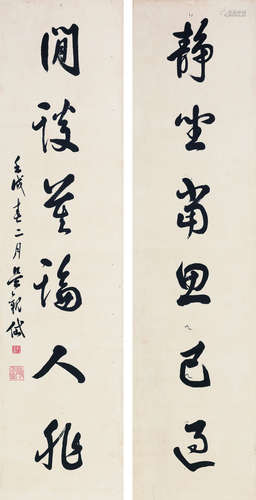 靜坐當思己過
閒談莫論人非
壬戌春二月吳觀岱